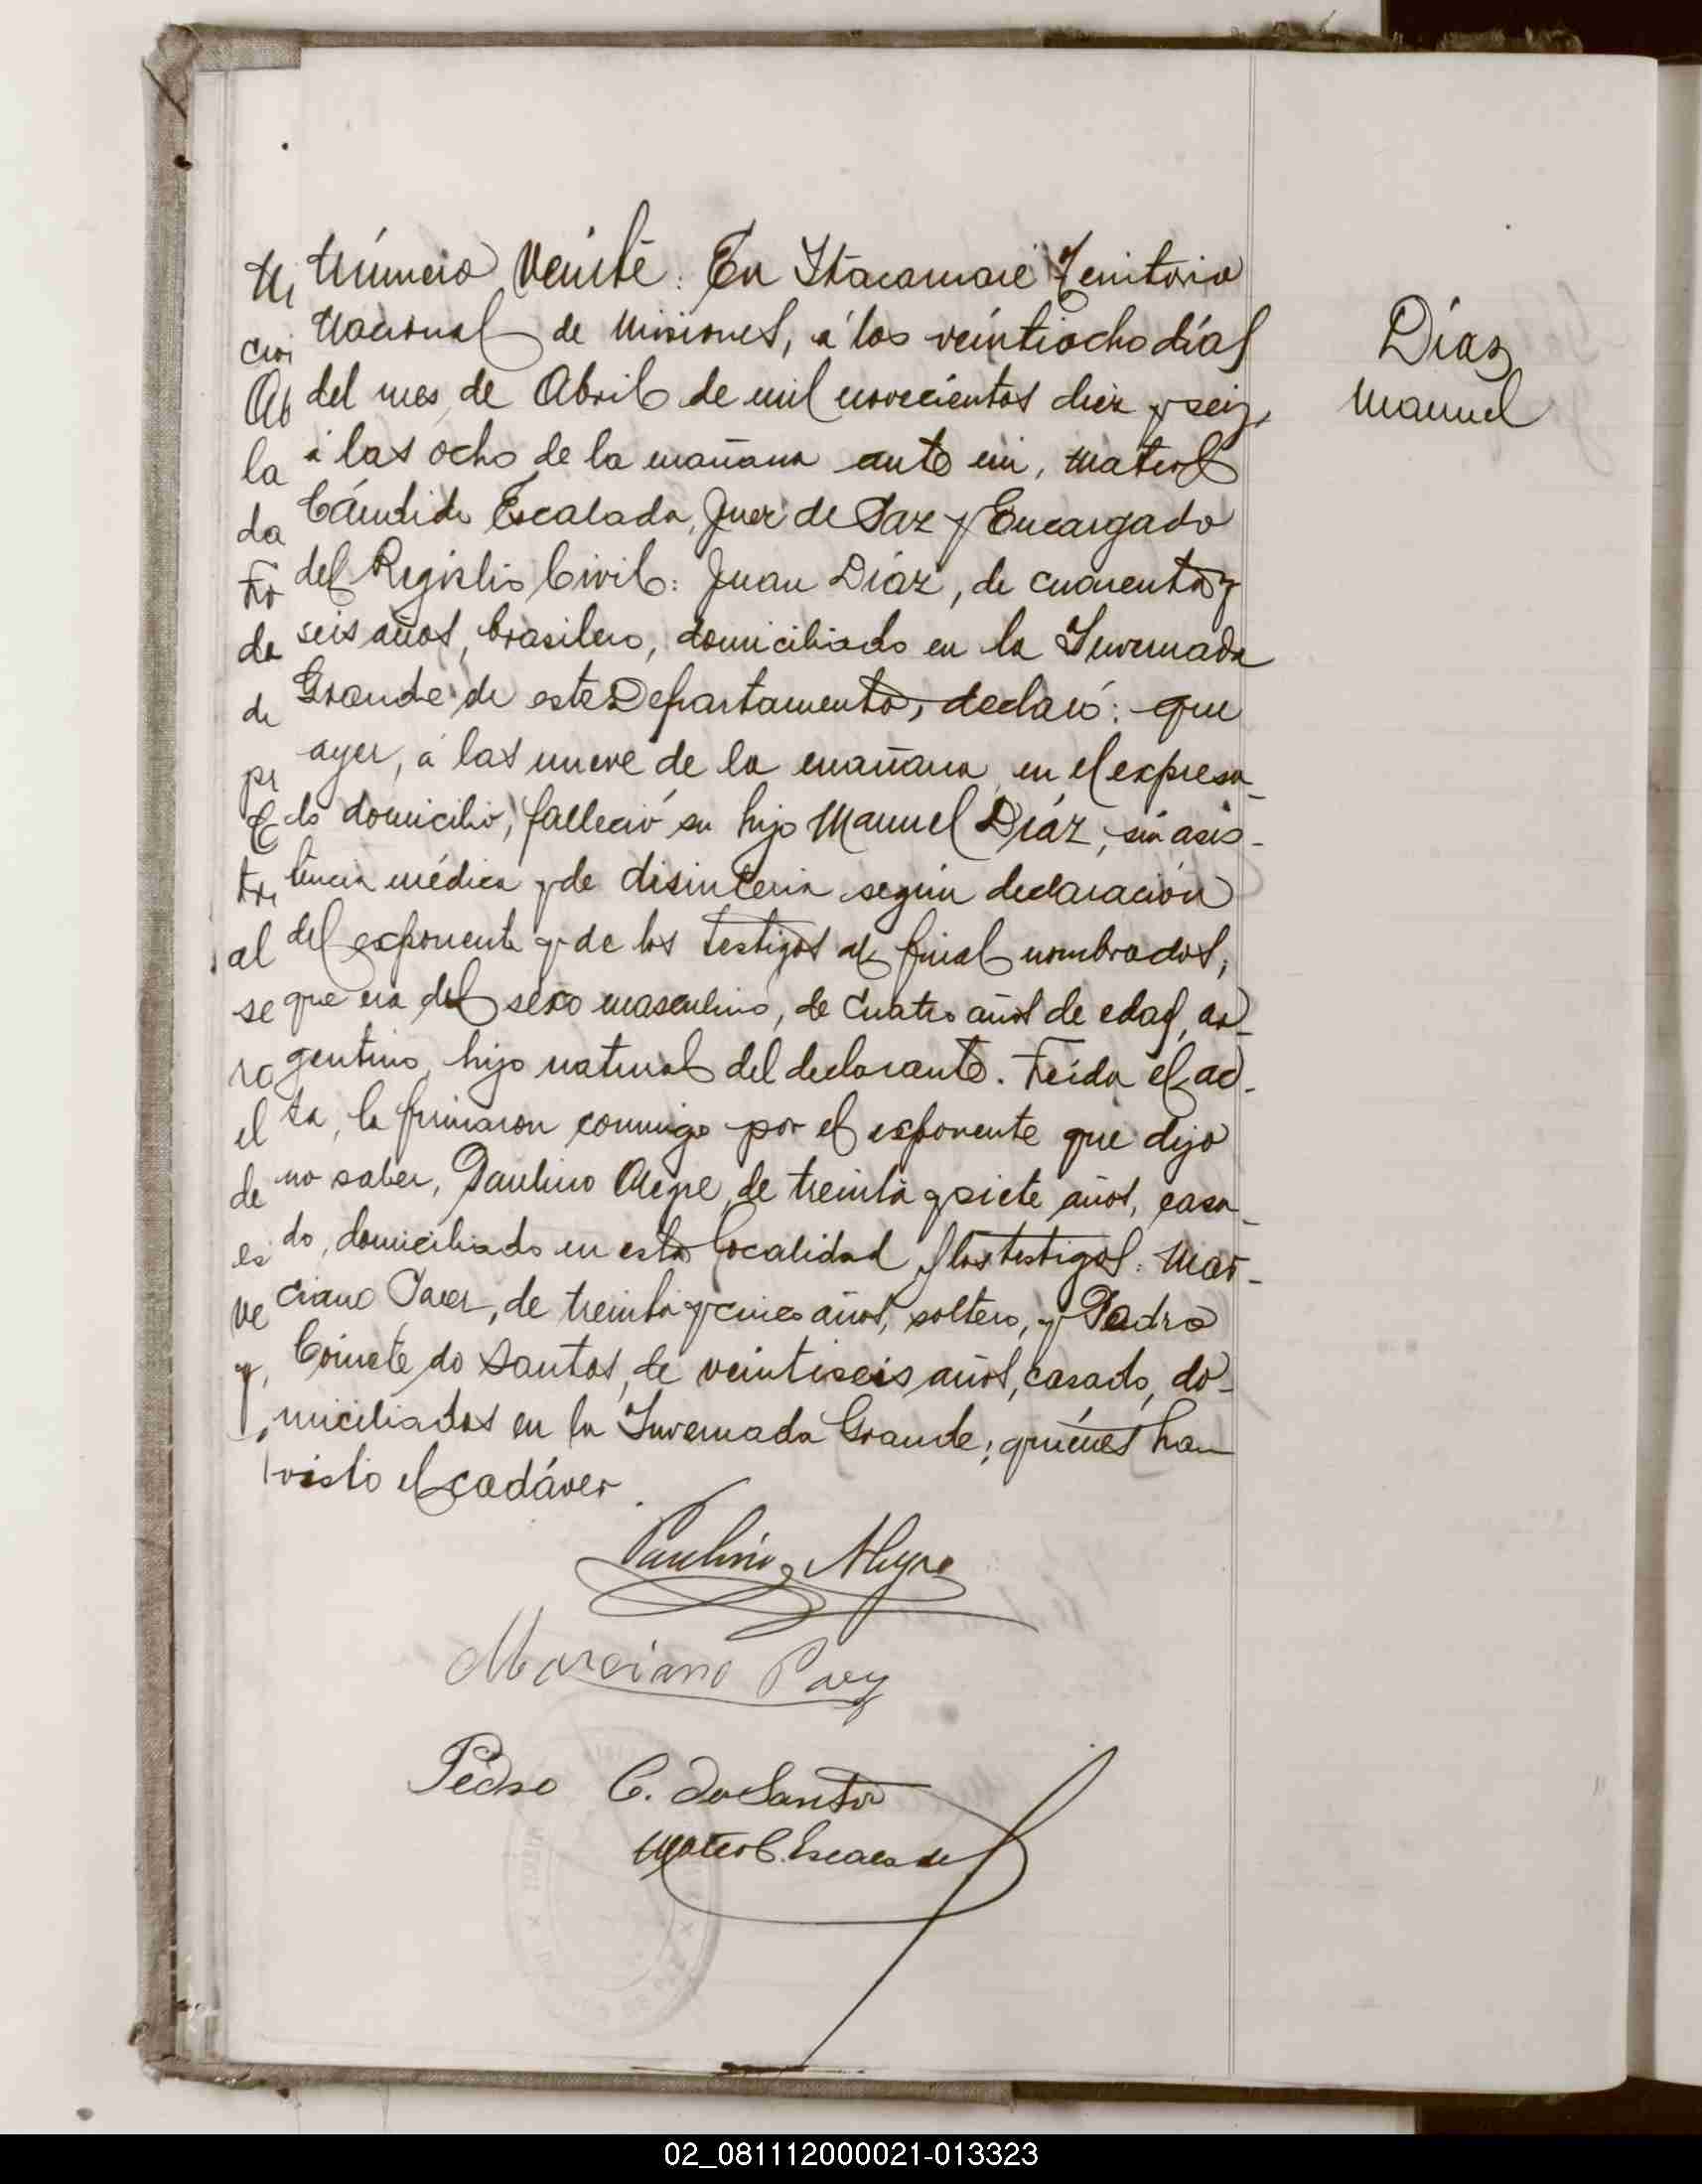 Número Veinte: En Itacaruaré Territorio
Nacional de Misiones, á los veintiocho días
del mes de Abril de mil novecientos diez y seis,
á las ocho de la mañana ante mi, Mateo
Cándido Escalada, Juez de Paz y Encargado
del Registro Civil: Juan Díaz, de cuarenta y
seis años, brasilero, domiciliado en la Invernada
Grande de este Departamento, declaró: que
ayer, á las nueve de la mañana, en el expresa-
do domicilio, falleció su hijo Manuel Díaz, sin asis-
tencia médica y de disinteria según declaración
del exponente y de los testigos al final nombrados;
que era del sexo masculino, de cuatro años de edad, ar-
gentino, hijo natural del declarante. Leida el ac-
ta, la firmaron conmigo por el exponente que dijo
no saber, Paulino Alegre, de treinta y siete años, casa-
do, domiciliado en esta localidad y los testigos: Mar-
ciano Paez, de treinta y cinco años, soltero, y Pedro
do Santos, de veintiseis años, casado, do-
miciliados en la Invernada Grande; quiénes han
visto el cadáver.
Paulino Alegre
Marciano Paez
Pedro C. do Santo
Mateo C. Escalada
Díaz
Manuel
Ab
la
da
de
de
pr
al
se
ro
el
de
es
ve
y,
02_081112000021-013323